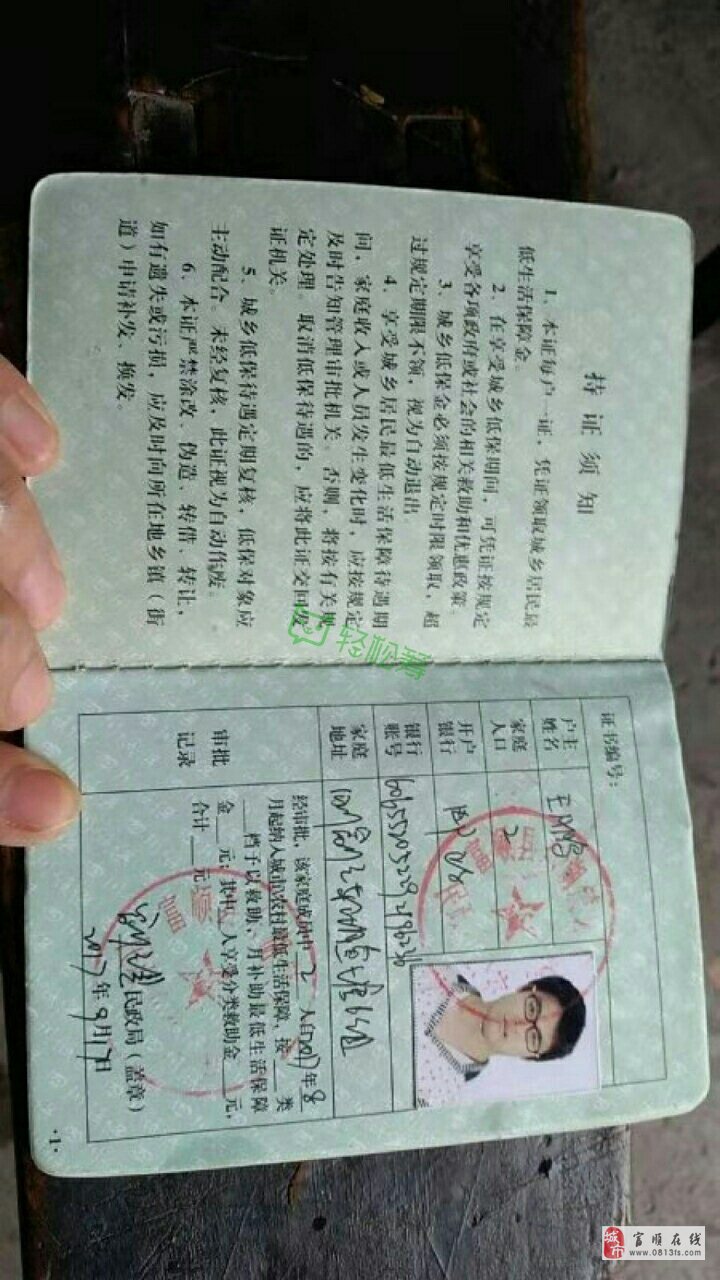 持证须知
1、本证每户一证，凭证领取城乡居民最
低生活保障金。
2、在享受城乡低保期间，可凭证按规定
享受各项政府或社会的相关救助和优惠政策。
3、城乡低保金必须按规定时限领取，超
过规定期限不领，视为自动退出
4、享受城乡居民最低生活保障待遇期
间，家庭收入或人员发生变化时，应按规定
及时告知管理审批机关。否则，将按有关规
定处理。取消低保待遇的，应将此证交回发
证机关。
5、城乡低保待遇定期复核，低保对象应
主动配合。未经复核，此证视为自动作废。
6、本证严禁涂改、伪造、转借、转让，
如有遗失或污损，应及时向所在地乡镇（街
道）申请补发、换发。
轻松筹
证书编号：
户主
姓名
家庭
人口
2
开户
银行
银行
账号
家庭
地址
审批
记录
经审批，该家庭成员中 2 人自2017年8
月起纳入城市/农村最低生活保障，按 类
档予以救助、月补助最低生活保障
金 元；其中 人享受分类救助金 元，
合计 元。
民政局（盖章）
2017年9月17日
·1·
城市
富顺在线
www.0813fs.com